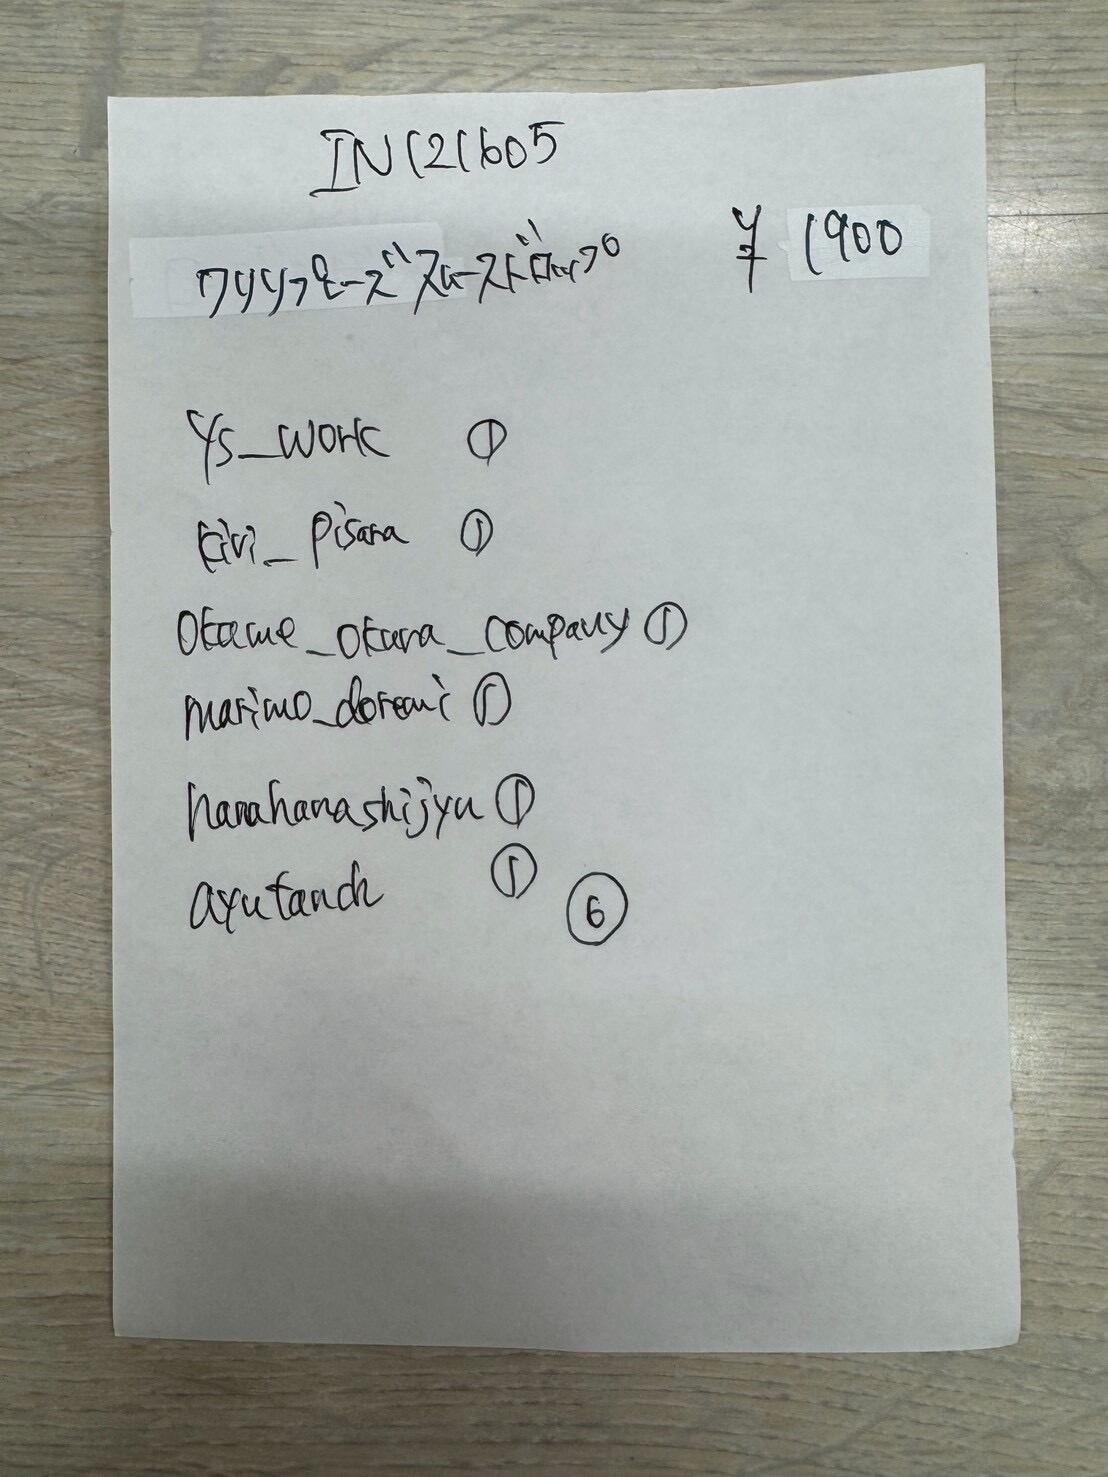 IN121605
クリソプレーズスムースドロップ ¥1900
ys_work ①
kivi_pisara ①
okame_okara_company ①
marimo_doremi ①
hanahanashijyu ①
ayutanch ①
⑥